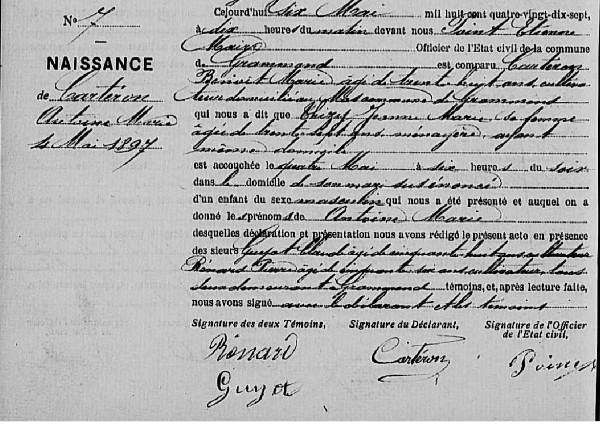 N° 7
NAISSANCE
de Cartéron
Antoine Marie
4 Mai 1897
Cejourd'hui six Mai mil huit cent quatre-vingt-dix-sept,
à dix heures du matin devant nous Point Etienne
Maire Officier de l'Etat civil de la commune
de Grammond est comparu Cartéron
Benoit Marie âgé de trente huit ans, cultiva
teur domicilié en commune de Grammond
qui nous a dit que femme Marie sa femme
âgée de trente sept ans ménagère, ayant
même domicile
est accouchée le quatre Mai à six heures du soir
dans le domicile de son mari susénoncé
d'un enfant du sexe masculin qui nous a été présenté et auquel on a
donné les prénoms de Antoine Marie
desquelles déclaration et présentation nous avons rédigé le présent acte en présence
des sieurs Guyot Claude âgé de cinquante huit ans cultivateur
Rénard Pierre âgé de cinquante six ans cultivateur, tous
deux demeurant à Grammond témoins, et, après lecture faite,
nous avons signé avec le déclarant et les témoins
Signature des deux Témoins, Signature du Déclarant, Signature de l'Officier
de l'Etat civil,
Rénard Cartéron Point
Guyot